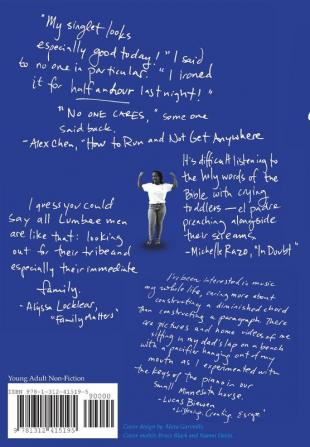 "My singlet looks
especially good today!" I said
to no one in particular. "I ironed
it for half an hour last night!"
"No one cares," some one
said back.
-Alex Chen, "How to Run and Not Get Anywhere
It's difficult listening to
the holy words of the
Bible with crying
toddlers — el pastor
preaching alongside
their screams
-Michelle Razo, "In Doubt"
I guess you could
say all Lumbee men
are like that: looking
out for their tribe and
especially their immediate
family.
-Alyssa Locklear,
"Family Matters"
I've been interested in music
my whole life, caring more about
constructing a diminished chord
than constructing a paragraph. There
are pictures and home videos of me
sitting in my dad's lap on a bench
with a pacifier hanging out of my
mouth as I experimented with
the keys of the piano in our
small Minnesota house.
-Lucas
Young Adult Non-Fiction
ISBN 978-1-312-41519-5
90000
9 781312 415195
Cover design by
Cover models Bruce Black and